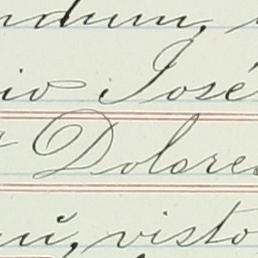 ndum,
io José
Dolores
ů, visto